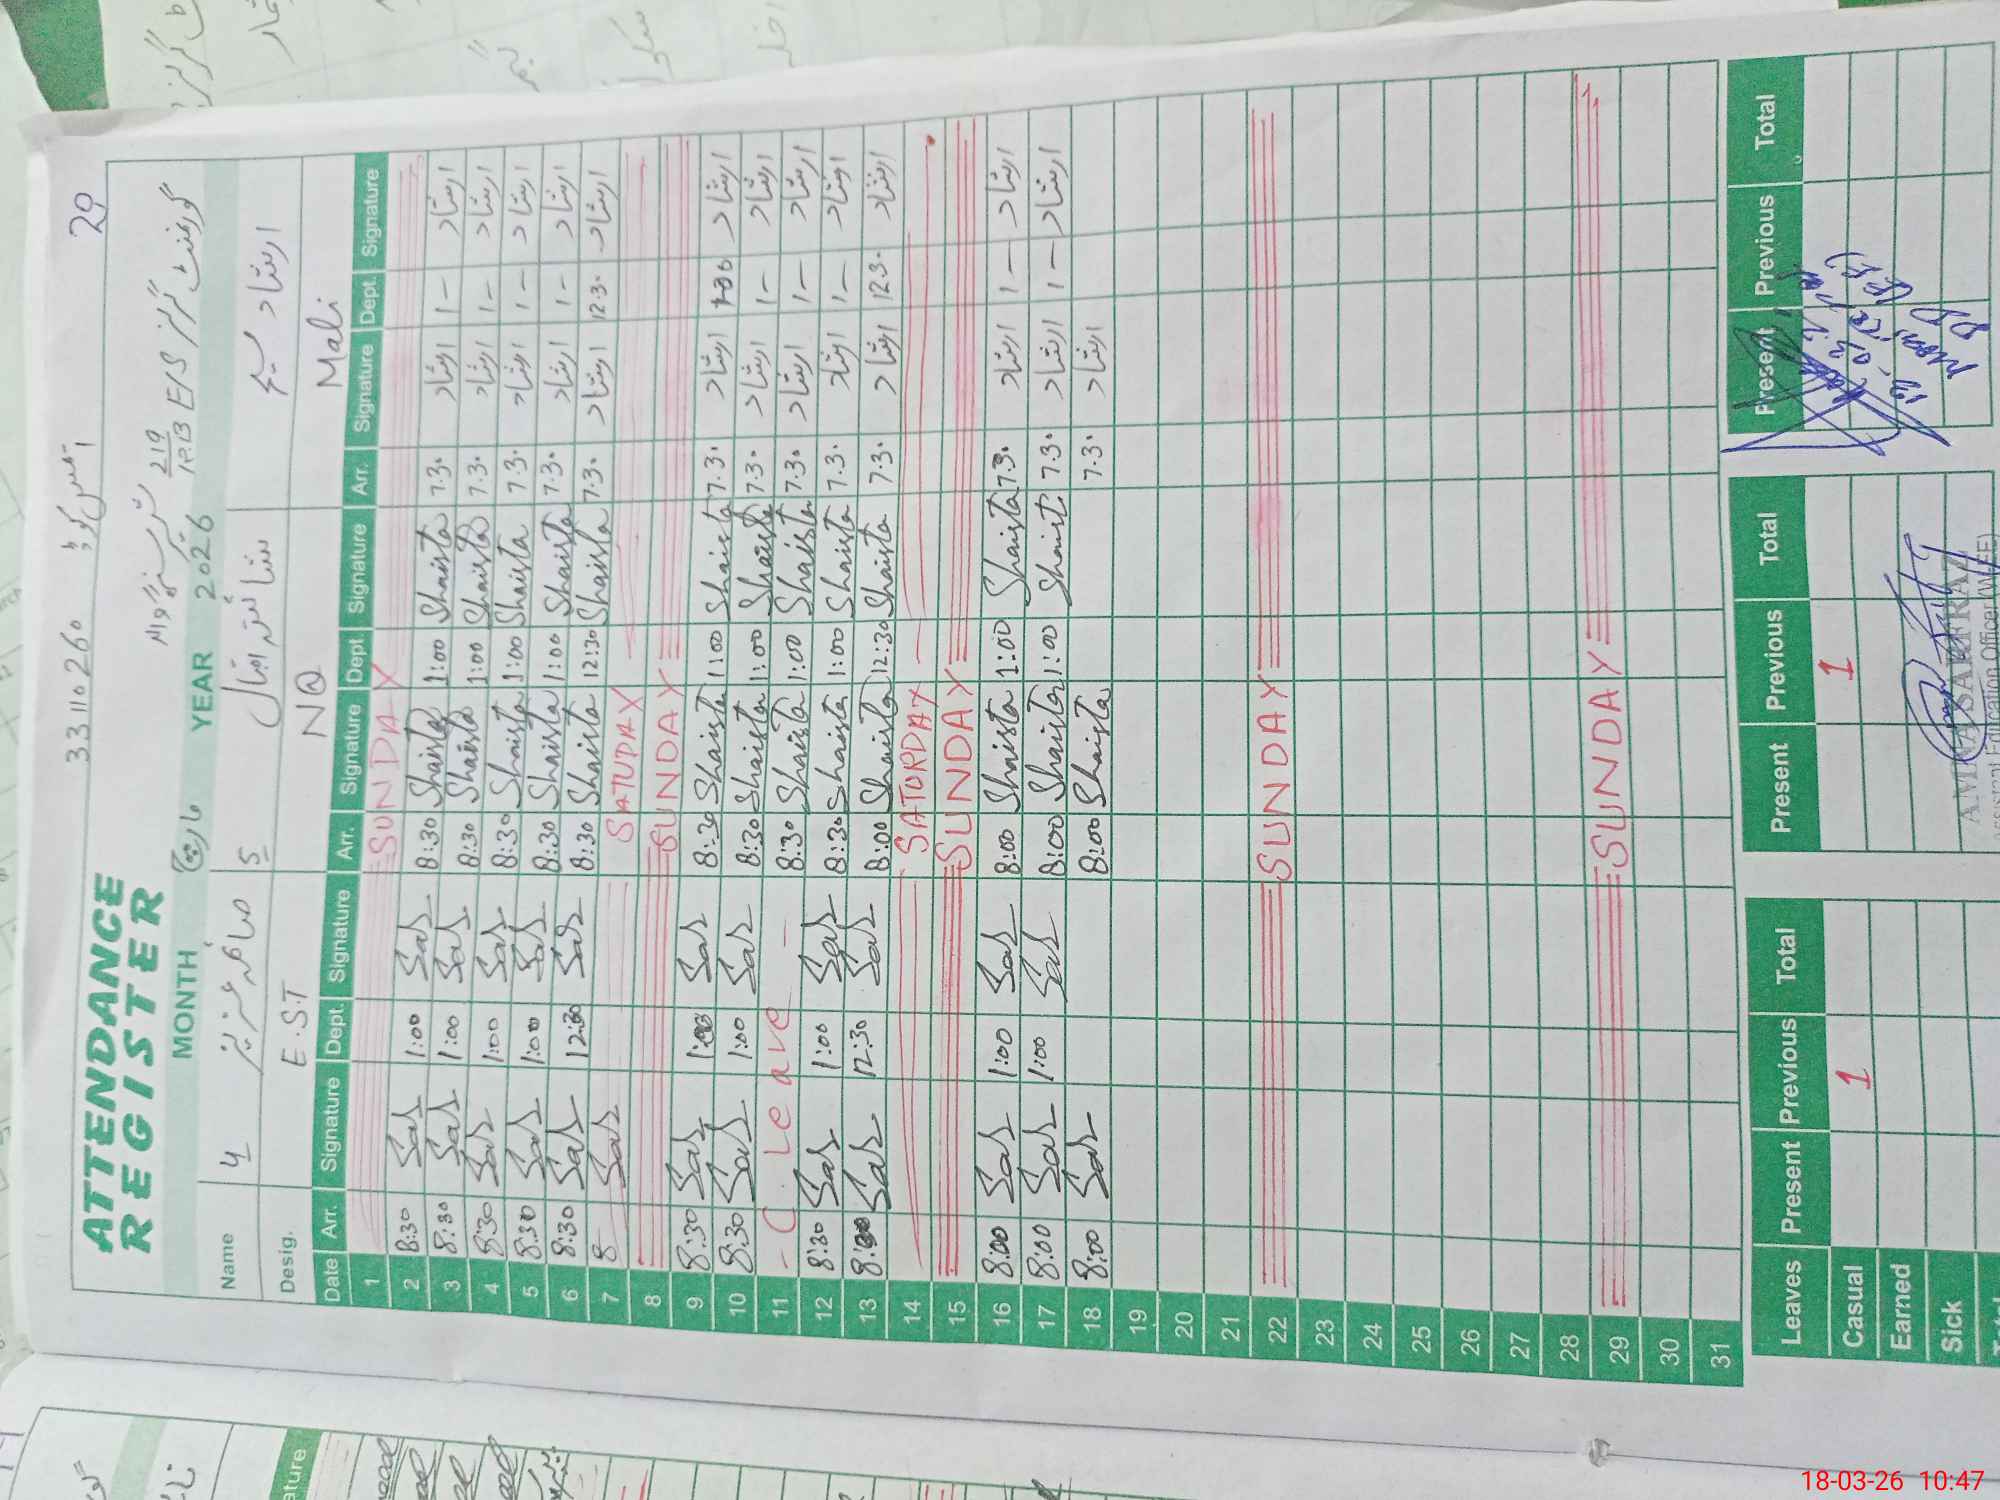 33110260
29
ATTENDANCE
REGISTER
گورنمنٹ گرلز E/S 219 ر۔ب
MONTH مارچ YEAR 2026
Name 4 صائمہ عزیز 5 شائستہ اقبال ارشاد مسیح
Desig. E.S.T NQ Mali
Date Arr. Signature Dept. Signature Arr. Signature Dept. Signature Arr. Signature Dept. Signature
1 SUNDAY
2 8:30 Sas 1:00 Sas 8:30 Shaista 1:00 Shaista 7.30 ارشاد 1 — ارشاد
3 8:30 Sas 1:00 Sas 8:30 Shaista 1:00 Shaista 7.30 ارشاد 1 — ارشاد
4 8:30 Sas 1:00 Sas 8:30 Shaista 1:00 Shaista 7.30 ارشاد 1 — ارشاد
5 8:30 Sas 1:00 Sas 8:30 Shaista 1:00 Shaista 7.30 ارشاد 1 — ارشاد
6 8:30 Sas 12:30 Sas 8:30 Shaista 12:30 Shaista 7.30 ارشاد 12.30 ارشاد
7 8 Sas SATUDAY
8 SUNDAY
9 8:30 Sas 1:00 Sas 8:30 Shaista 1:00 Shaista 7.30 ارشاد 1:00 ارشاد
10 8:30 Sas 1:00 Sas 8:30 Shaista 1:00 Shaista 7.30 ارشاد 1 — ارشاد
11 - C. leave - 8:30 Shaista 1:00 Shaista 7.30 ارشاد 1 — ارشاد
12 8:30 Sas 1:00 Sas 8:30 Shaista 1:00 Shaista 7.30 ارشاد 1 — ارشاد
13 8:00 Sas 12:30 Sas 8:00 Shaista 12:30 Shaista 7.30 ارشاد 12.30 ارشاد
14 SATURDAY
15 SUNDAY
16 8:00 Sas 1:00 Sas 8:00 Shaista 1:00 Shaista 7.30 ارشاد 1 — ارشاد
17 8:00 Sas 1:00 Sas 8:00 Shaista 1:00 Shaist 7.30 ارشاد 1 — ارشاد
18 8:00 Sas 8:00 Shaista 7.30 ارشاد
19
20
21
22 SUNDAY
23
24
25
26
27
28
29 SUNDAY
30
31
Leaves Present Previous Total Present Previous Total Present Previous Total
Casual 1 1
Earned
Sick
AMNA SARFRAZ
Assistant Education Officer (W-EE)
18-03-26 10:47